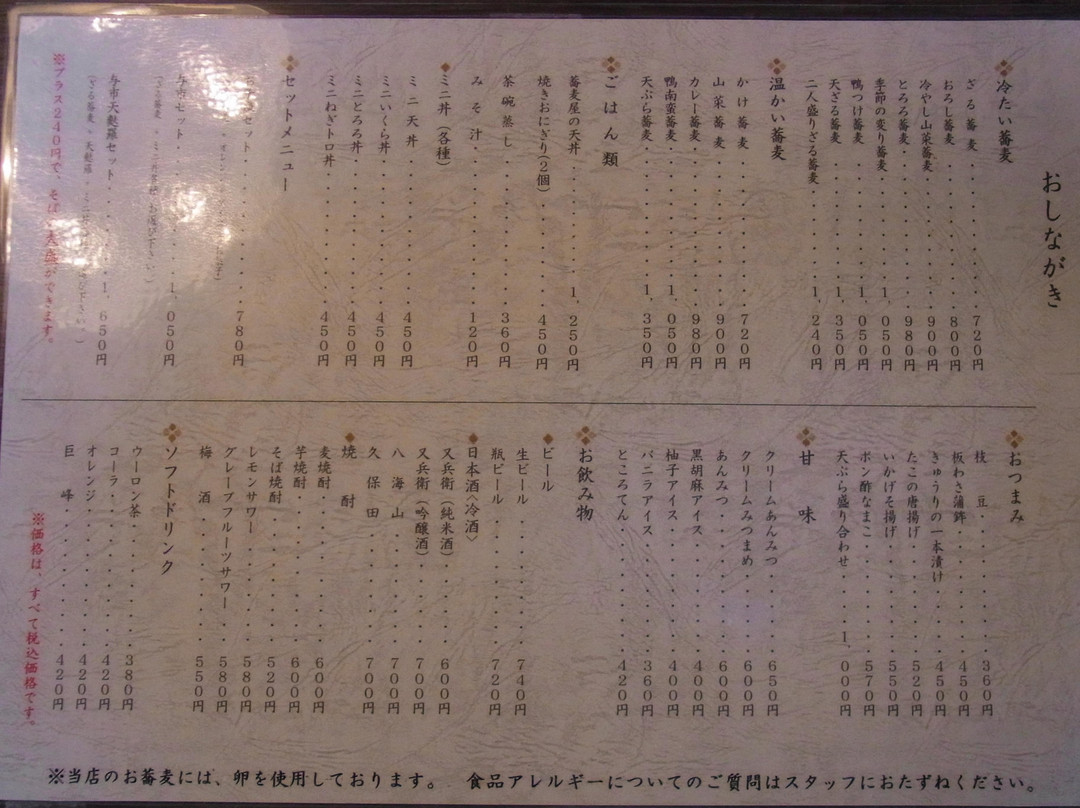 おしながき
冷たい蕎麦
ざる蕎麦・・・・・・720円
おろし蕎麦・・・・・・800円
冷やし山菜蕎麦・・・・・・900円
とろろ蕎麦・・・・・・980円
季節の変り蕎麦・・・・・・1,050円
鴨つけ蕎麦・・・・・・1,050円
天ざる蕎麦・・・・・・1,350円
二人盛りざる蕎麦・・・・・・1,240円
温かい蕎麦
かけ蕎麦・・・・・・720円
山菜蕎麦・・・・・・900円
カレー蕎麦・・・・・・980円
鴨南蛮蕎麦・・・・・・1,050円
天ぷら蕎麦・・・・・・1,350円
ごはん類
蕎麦屋の天丼・・・・・・1,250円
焼きおにぎり(2個)・・・・・・450円
茶碗蒸し・・・・・・360円
みそ汁・・・・・・120円
ミニ丼(各種)
ミニ天丼・・・・・・450円
ミニいくら丼・・・・・・450円
ミニとろろ丼・・・・・・450円
ミニねぎトロ丼・・・・・・450円
セットメニュー
セット・・・・・・780円
与市セット・・・・・・1,050円
与市天麩羅セット・・・・・・1,650円
※プラス240円で、そば大盛ができます。
おつまみ
枝豆・・・・・・360円
板わさ蒲鉾・・・・・・450円
きゅうりの一本漬け・・・・・・450円
たこの唐揚げ・・・・・・520円
いかげそ揚げ・・・・・・550円
ポン酢なまこ・・・・・・570円
天ぷら盛り合わせ・・・・・・1,000円
甘味
クリームあんみつ・・・・・・650円
クリームみつまめ・・・・・・600円
あんみつ・・・・・・600円
黒胡麻アイス・・・・・・400円
柚子アイス・・・・・・400円
バニラアイス・・・・・・360円
ところてん・・・・・・420円
お飲み物
ビール
生ビール・・・・・・740円
瓶ビール・・・・・・720円
日本酒〈冷酒〉
又兵衛(純米酒)・・・・・・600円
又兵衛(吟醸酒)・・・・・・700円
八海山・・・・・・700円
久保田・・・・・・700円
焼酎
麦焼酎・・・・・・600円
芋焼酎・・・・・・600円
そば焼酎・・・・・・520円
レモンサワー・・・・・・580円
グレープフルーツサワー・・・・・・580円
梅酒・・・・・・550円
ソフトドリンク
ウーロン茶・・・・・・380円
コーラ・・・・・・420円
オレンジ・・・・・・420円
巨峰・・・・・・420円
※価格は、すべて税込価格です。
※当店のお蕎麦には、卵を使用しております。　食品アレルギーについてのご質問はスタッフにおたずねください。